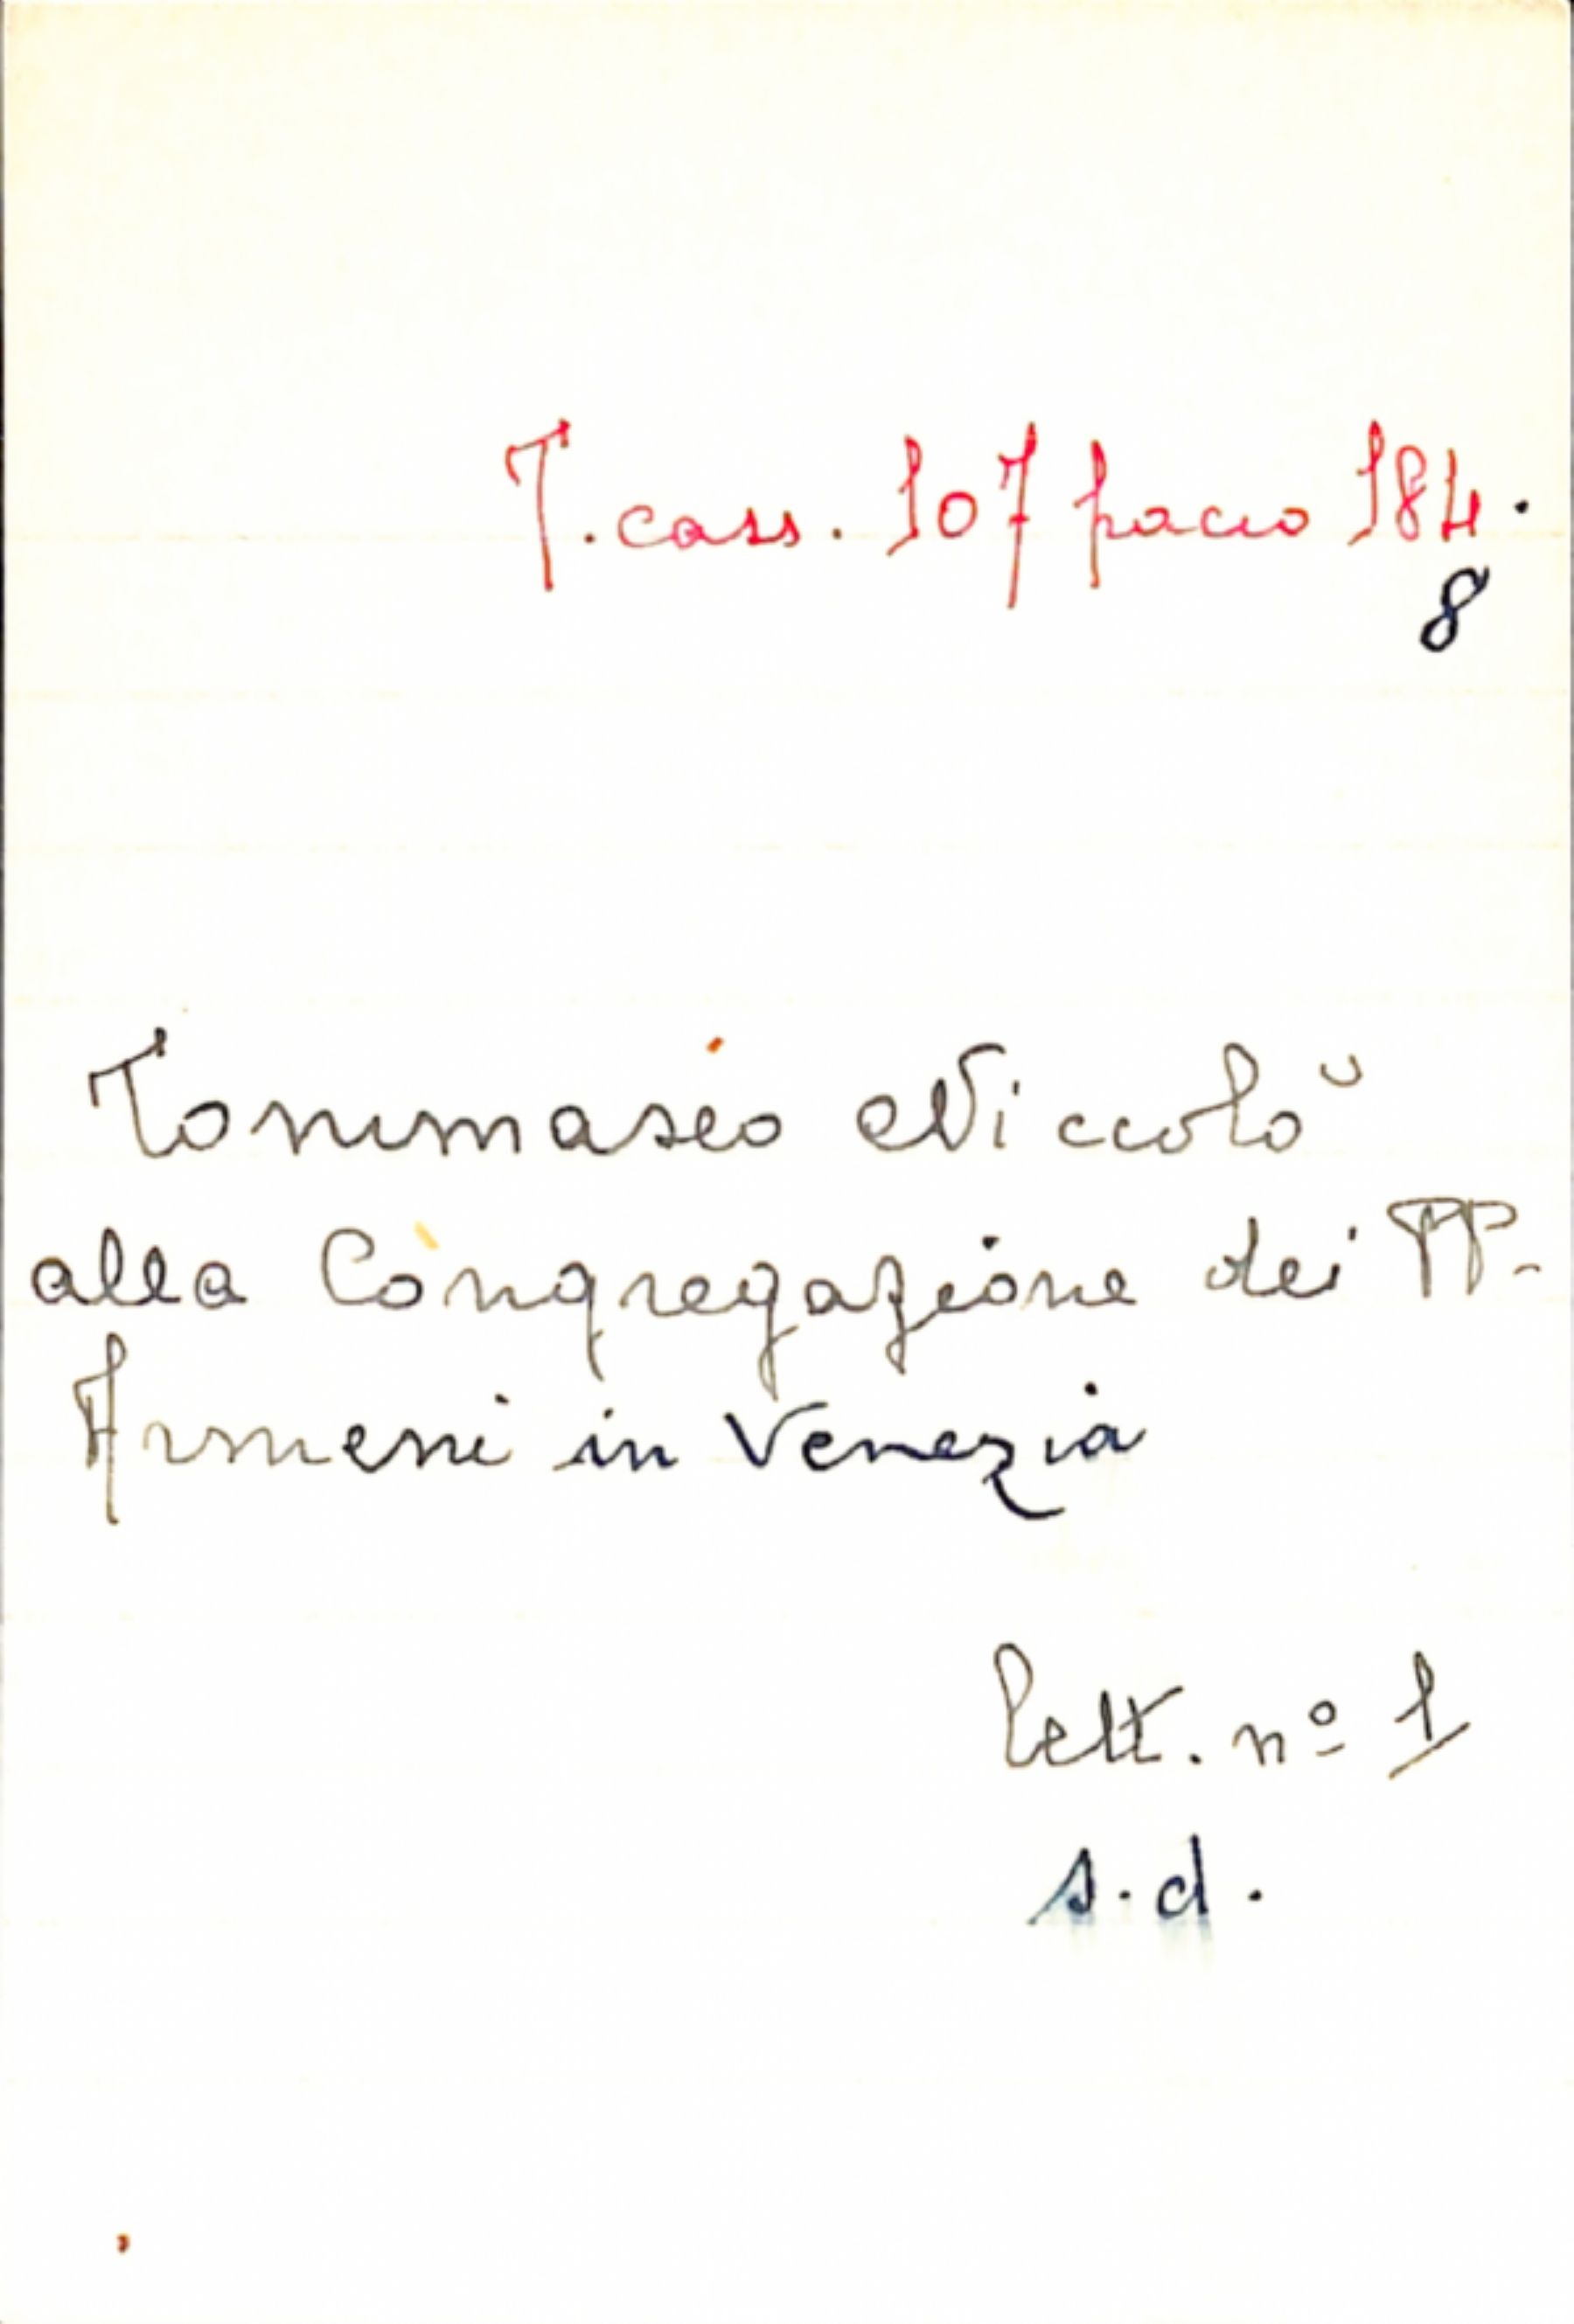 T. cass. 107 pacco 184.
8
Tommaseo Niccolò
alla Congregazione dei PP.
Armeni in Venezia
lett. nº 1
s. d.